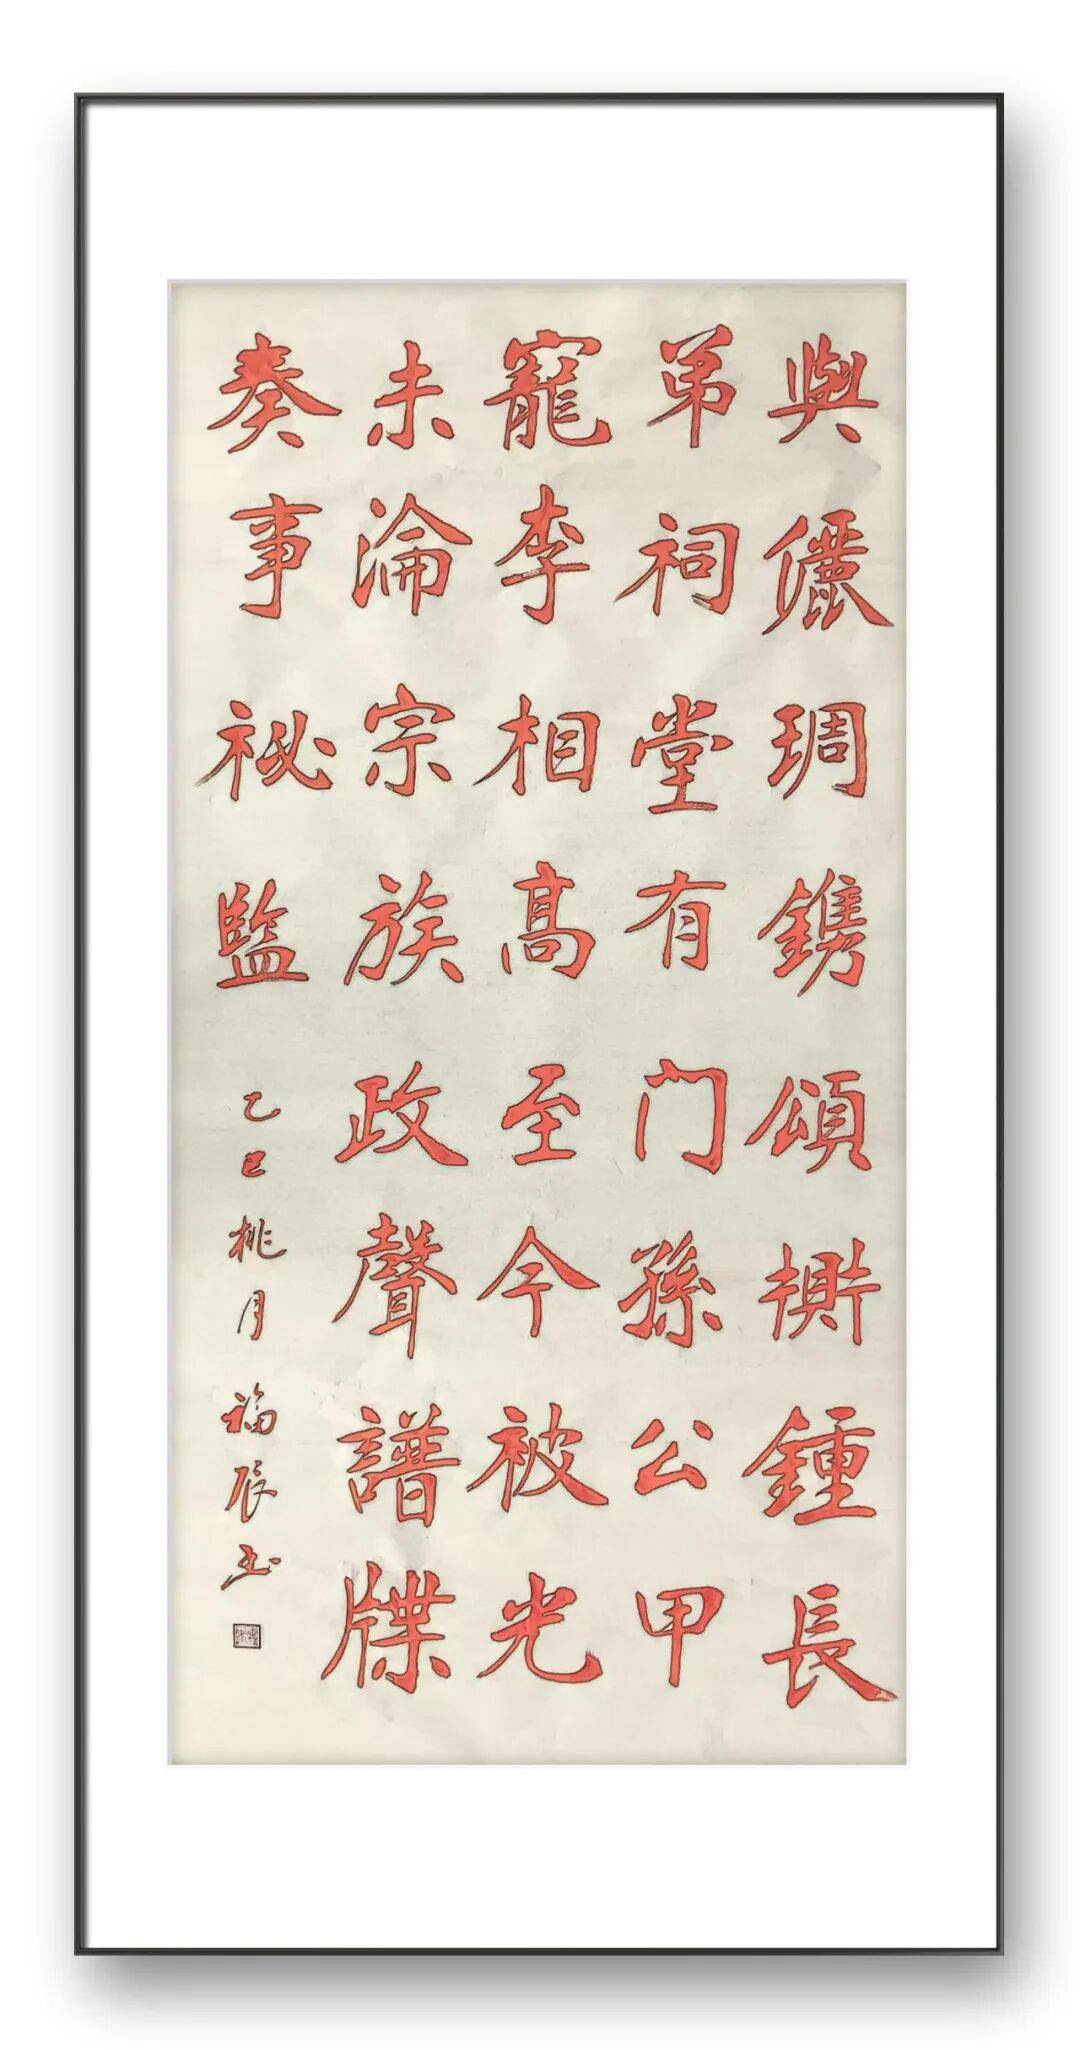 與儷琱鐫頌衡鍾長
弟祠堂有门孫公甲
寵李相高至今被光
未淪宗族政聲譜牒
奏事祕監
乙巳桃月福辰书